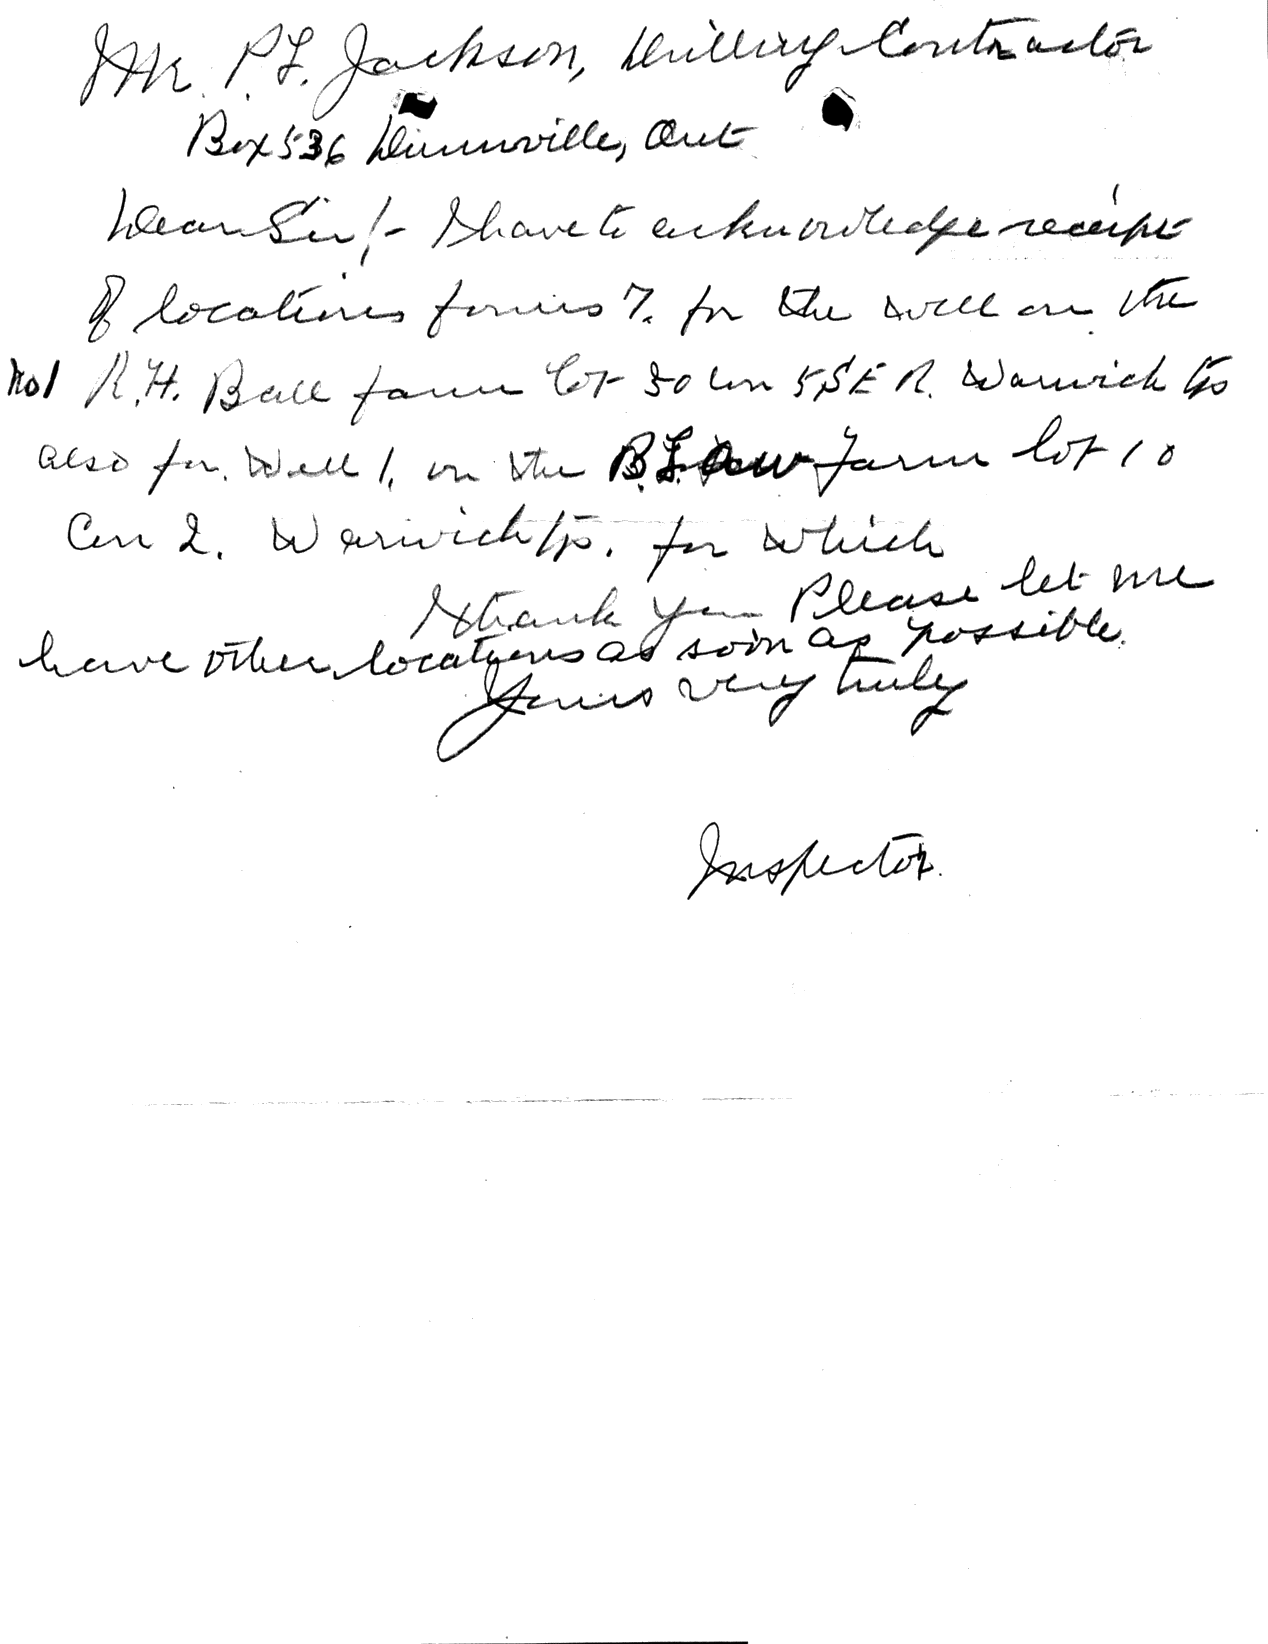 Mr. P.L. Jackson, Drilling Contractor
Box 536 Dunnville, Ont
Dear Sir!- I have to acknowledge receipt
of locations forms 7. for the well on the
No 1 R.H. Ball farm lot 30 Con 5 S E R. Warwick Tp
also for Well 1. on the B.L. farm lot 10
Con 2. Warwick Tp. for which
I thank you Please let me
have other locations as soon as possible.
Yours very truly
Inspector.